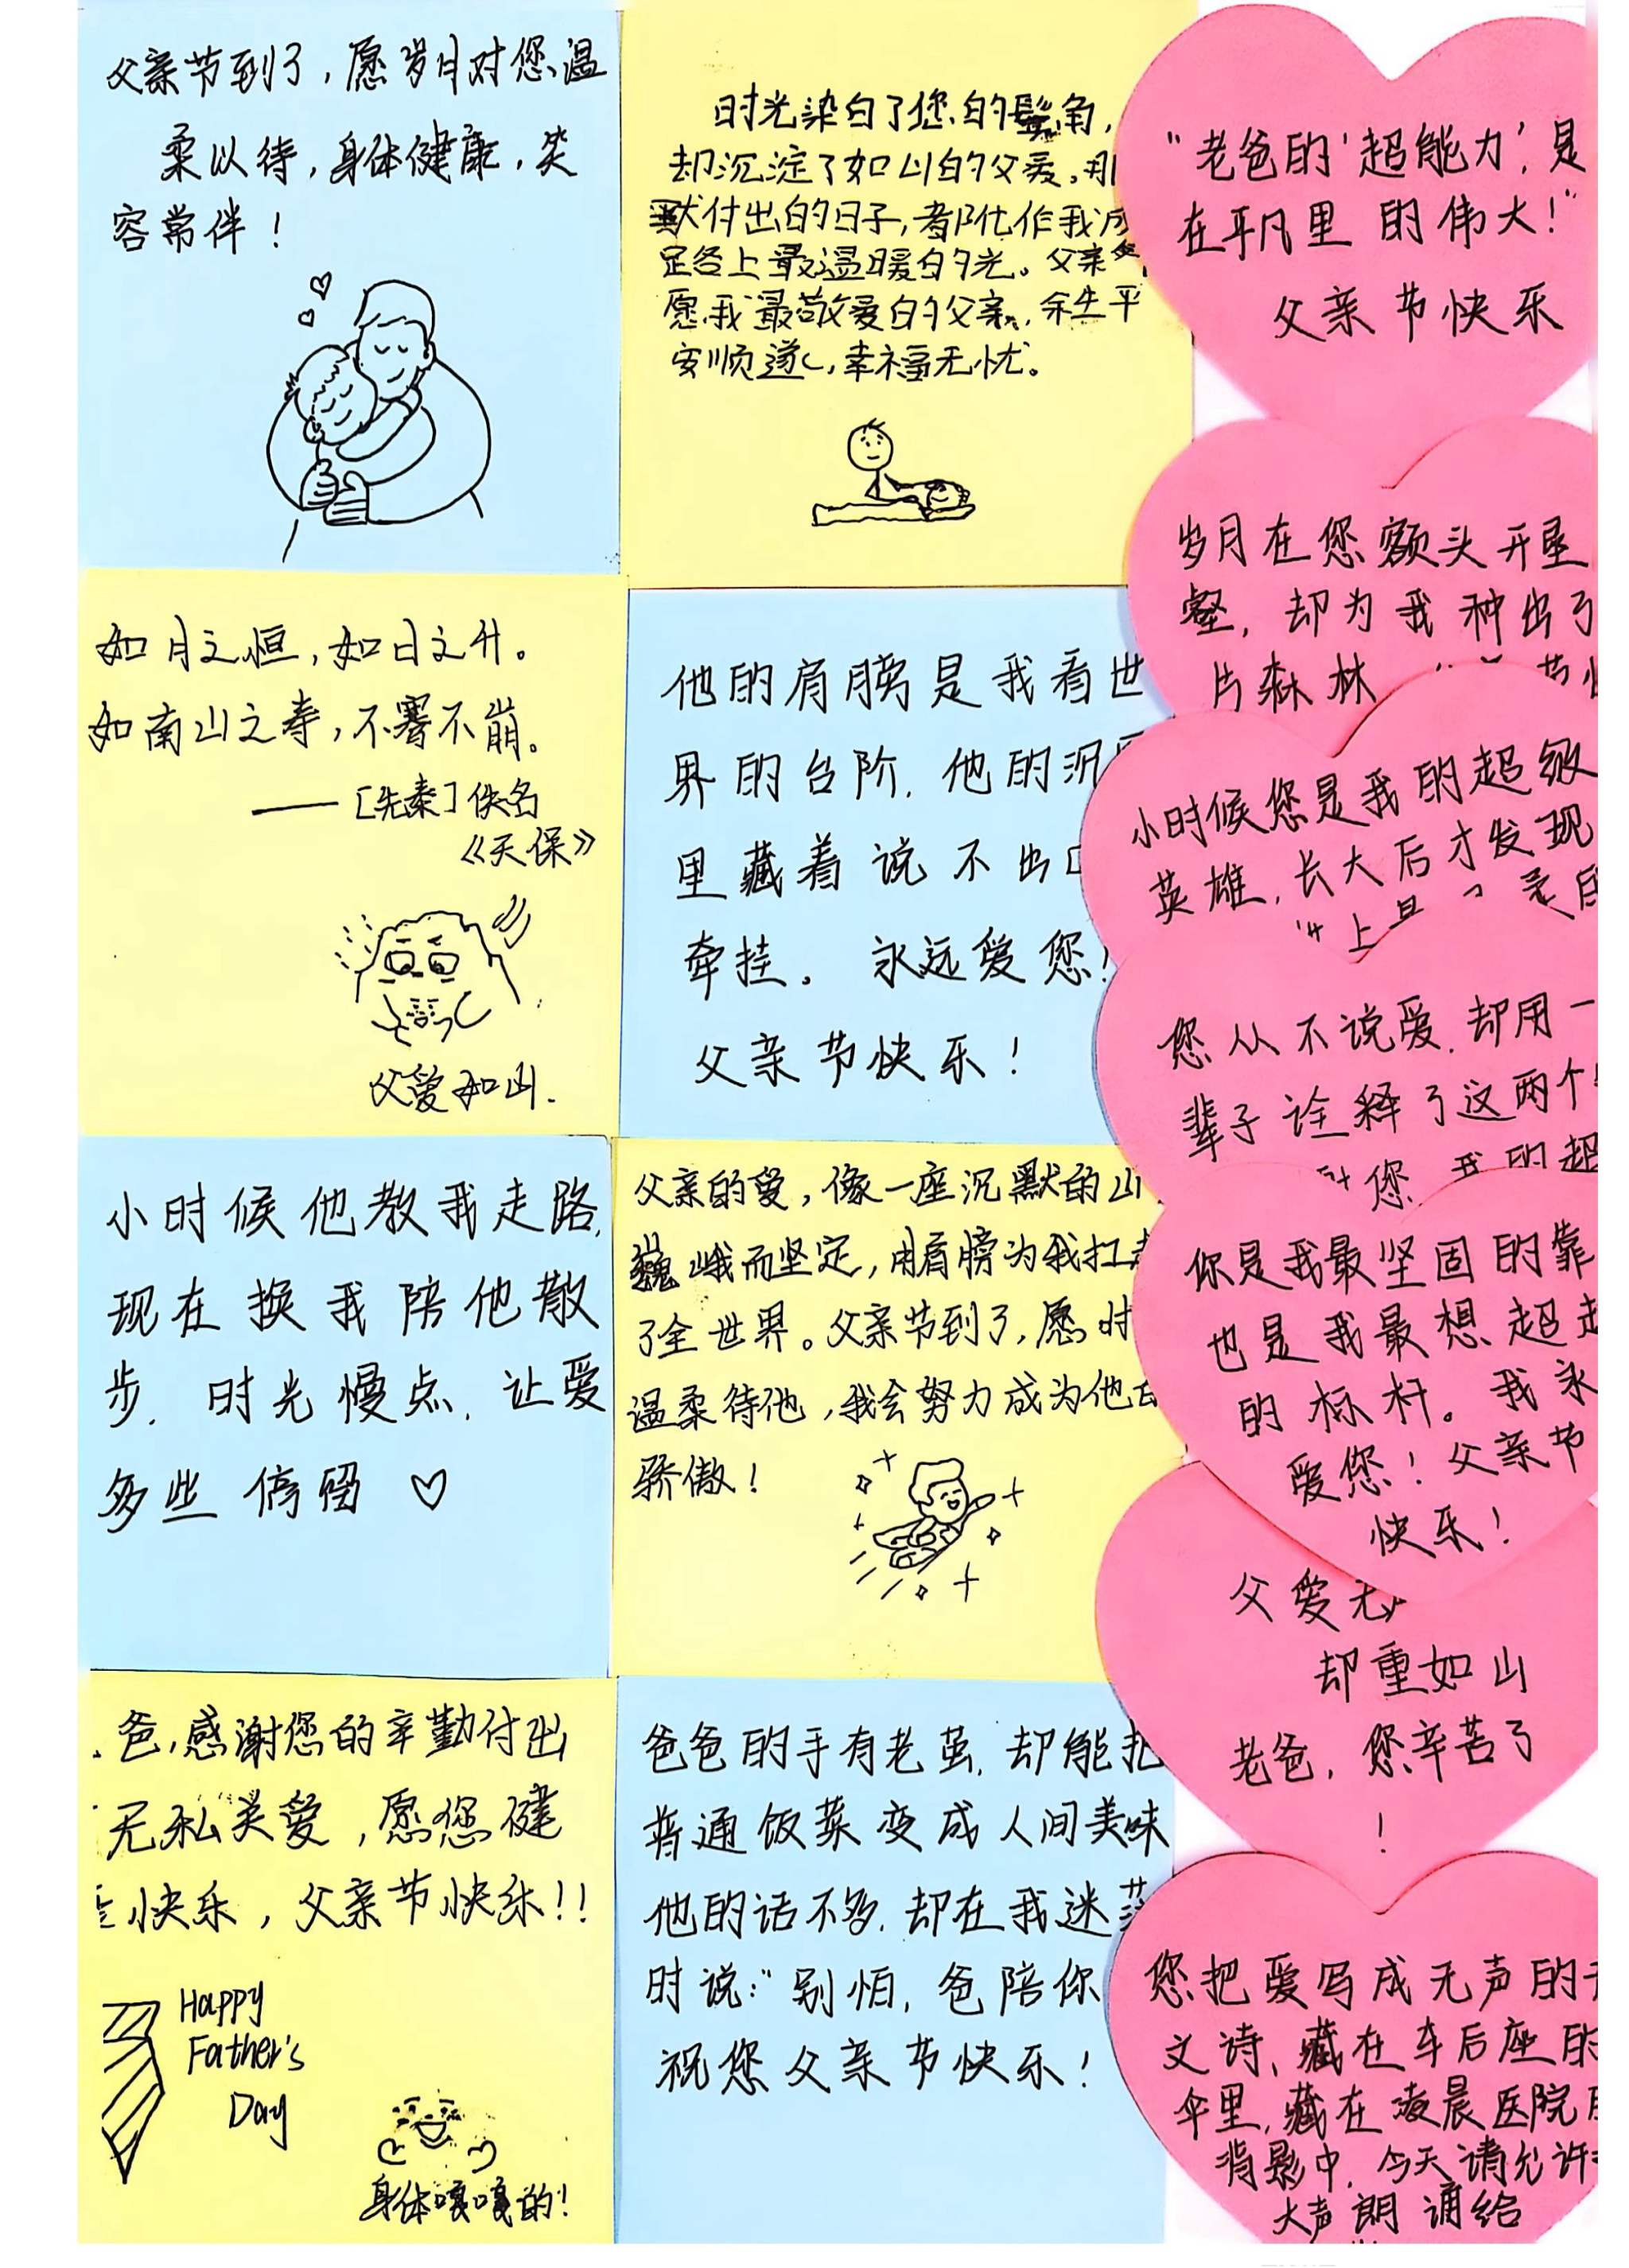 父亲节到了，愿岁月对您温
柔以待，身体健康，笑
容常伴！
时光染白了您的鬓角，
却沉淀了如山的父爱。那
默付出的日子，都化作我成
足各上最温暖的光。父亲
愿我最敬爱的父亲，余生平
安顺遂，幸福无忧。
如月之恒，如日之升。
如南山之寿，不骞不崩。
——［先秦］佚名
《天保》
父爱如山.
他的肩膀是我看世
界的台阶，他的沉
里藏着说不出
牵挂。永远爱您！
父亲节快乐！
小时候他教我走路，
现在换我陪他散
步，时光慢点，让爱
多些停留♡
父亲的爱，像一座沉默的山
巍峨而坚定，用肩膀为我扛
了全世界。父亲节到了，愿时
温柔待他，我会努力成为他
骄傲！
爸，感谢您的辛勤付出
无私关爱，愿您健
快乐，父亲节快乐！！
Happy
Father's
Day
身体嘎嘎的！
爸爸的手有老茧，却能把
普通饭菜变成人间美味
他的话不多，却在我迷茫
时说：“别怕，爸陪你
祝您父亲节快乐！
“老爸的‘超能力’，是
在平凡里的伟大！”
父亲节快乐
岁月在您额头开垦
壑，却为我种出了
片森林
小时候您是我的超级
英雄，长大后才发现
您从不说爱，却用一
辈子诠释了这两个
您 我的超
你是我最坚固的靠
也是我最想超
的标杆。我永
爱您！父亲节
快乐！
父爱无
却重如山
老爸，您辛苦了
！
您把爱写成无声的
文诗，藏在车后座的
伞里，藏在凌晨医院
背影中，今天请允许
大声朗诵给